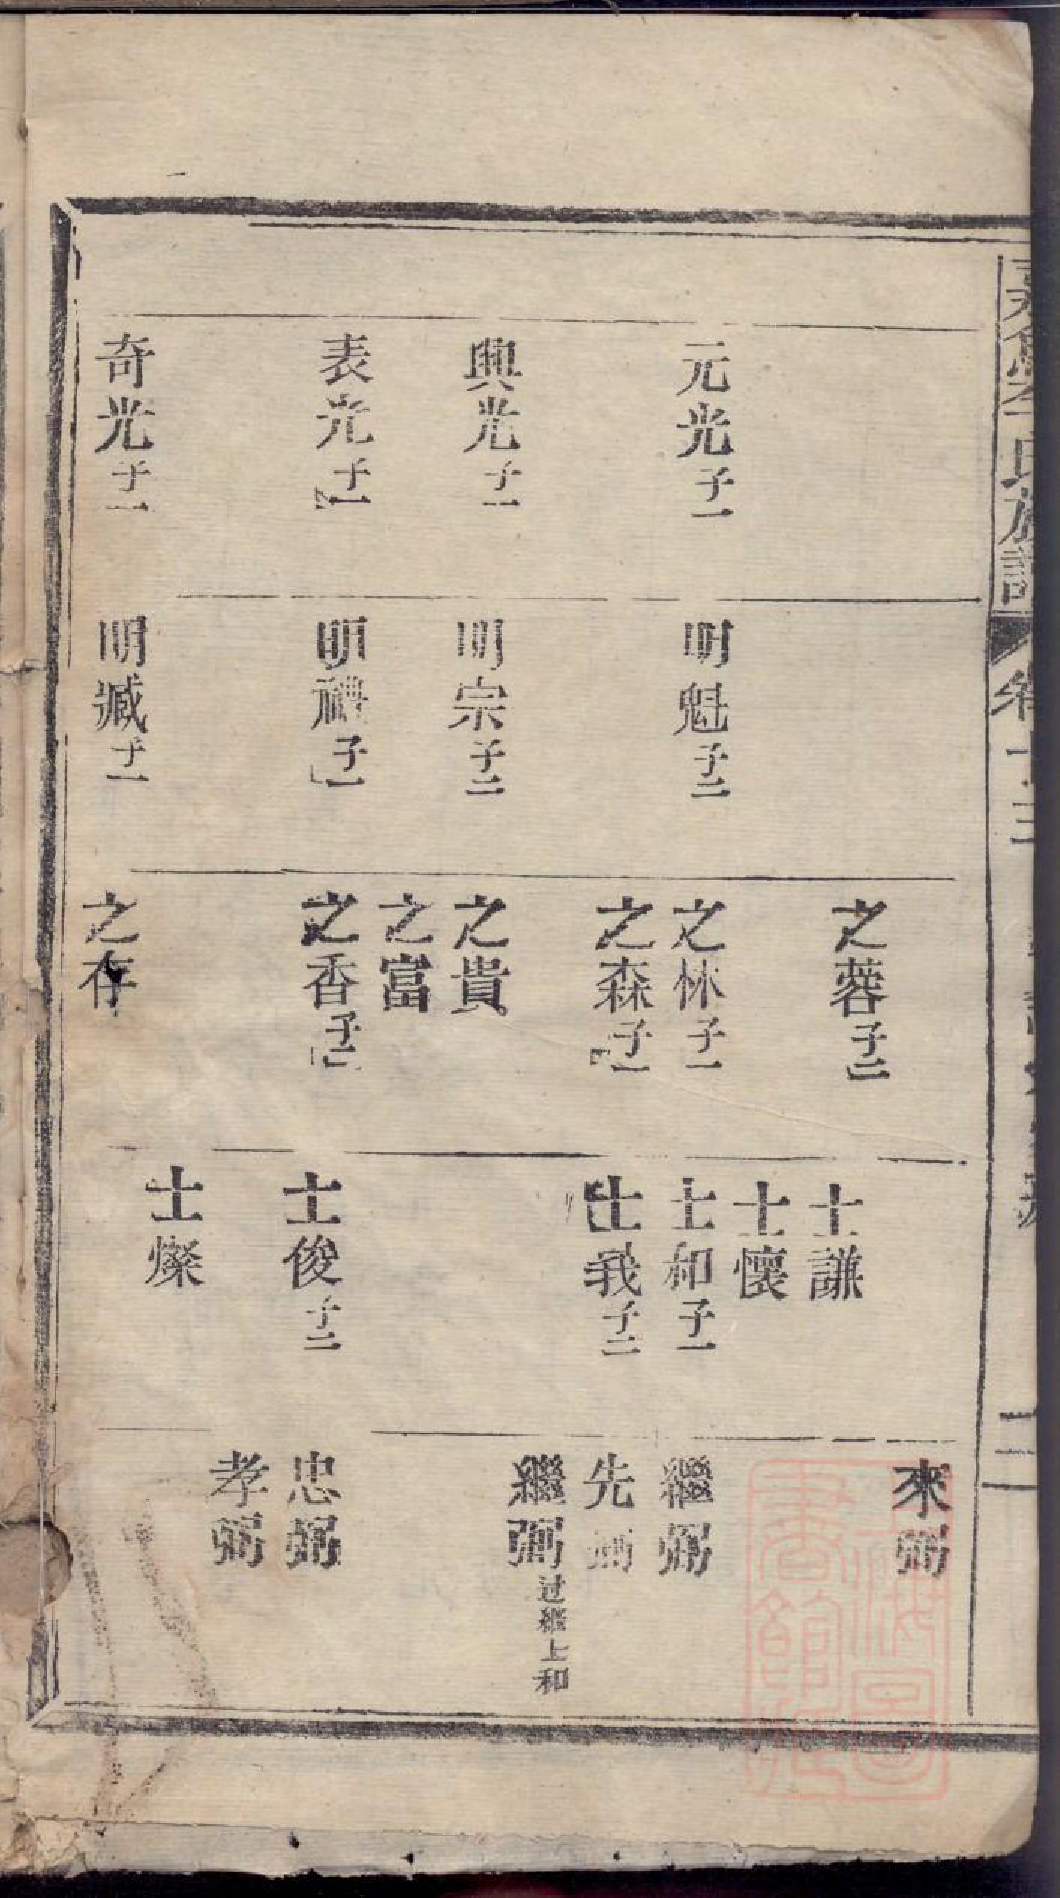 元光子一
興光子一
表光子一
奇光子一
明魁子二
明宗子二
明禮子一
明臧子一
之蓉子二
之林子一
之森子一
之貴
之富
之香子二
之存
士謙
士懷
士和子一
士我子二
士俊子二
士燦
來弼
繼弼
先弼
繼弼过繼士和
忠弼
孝弼